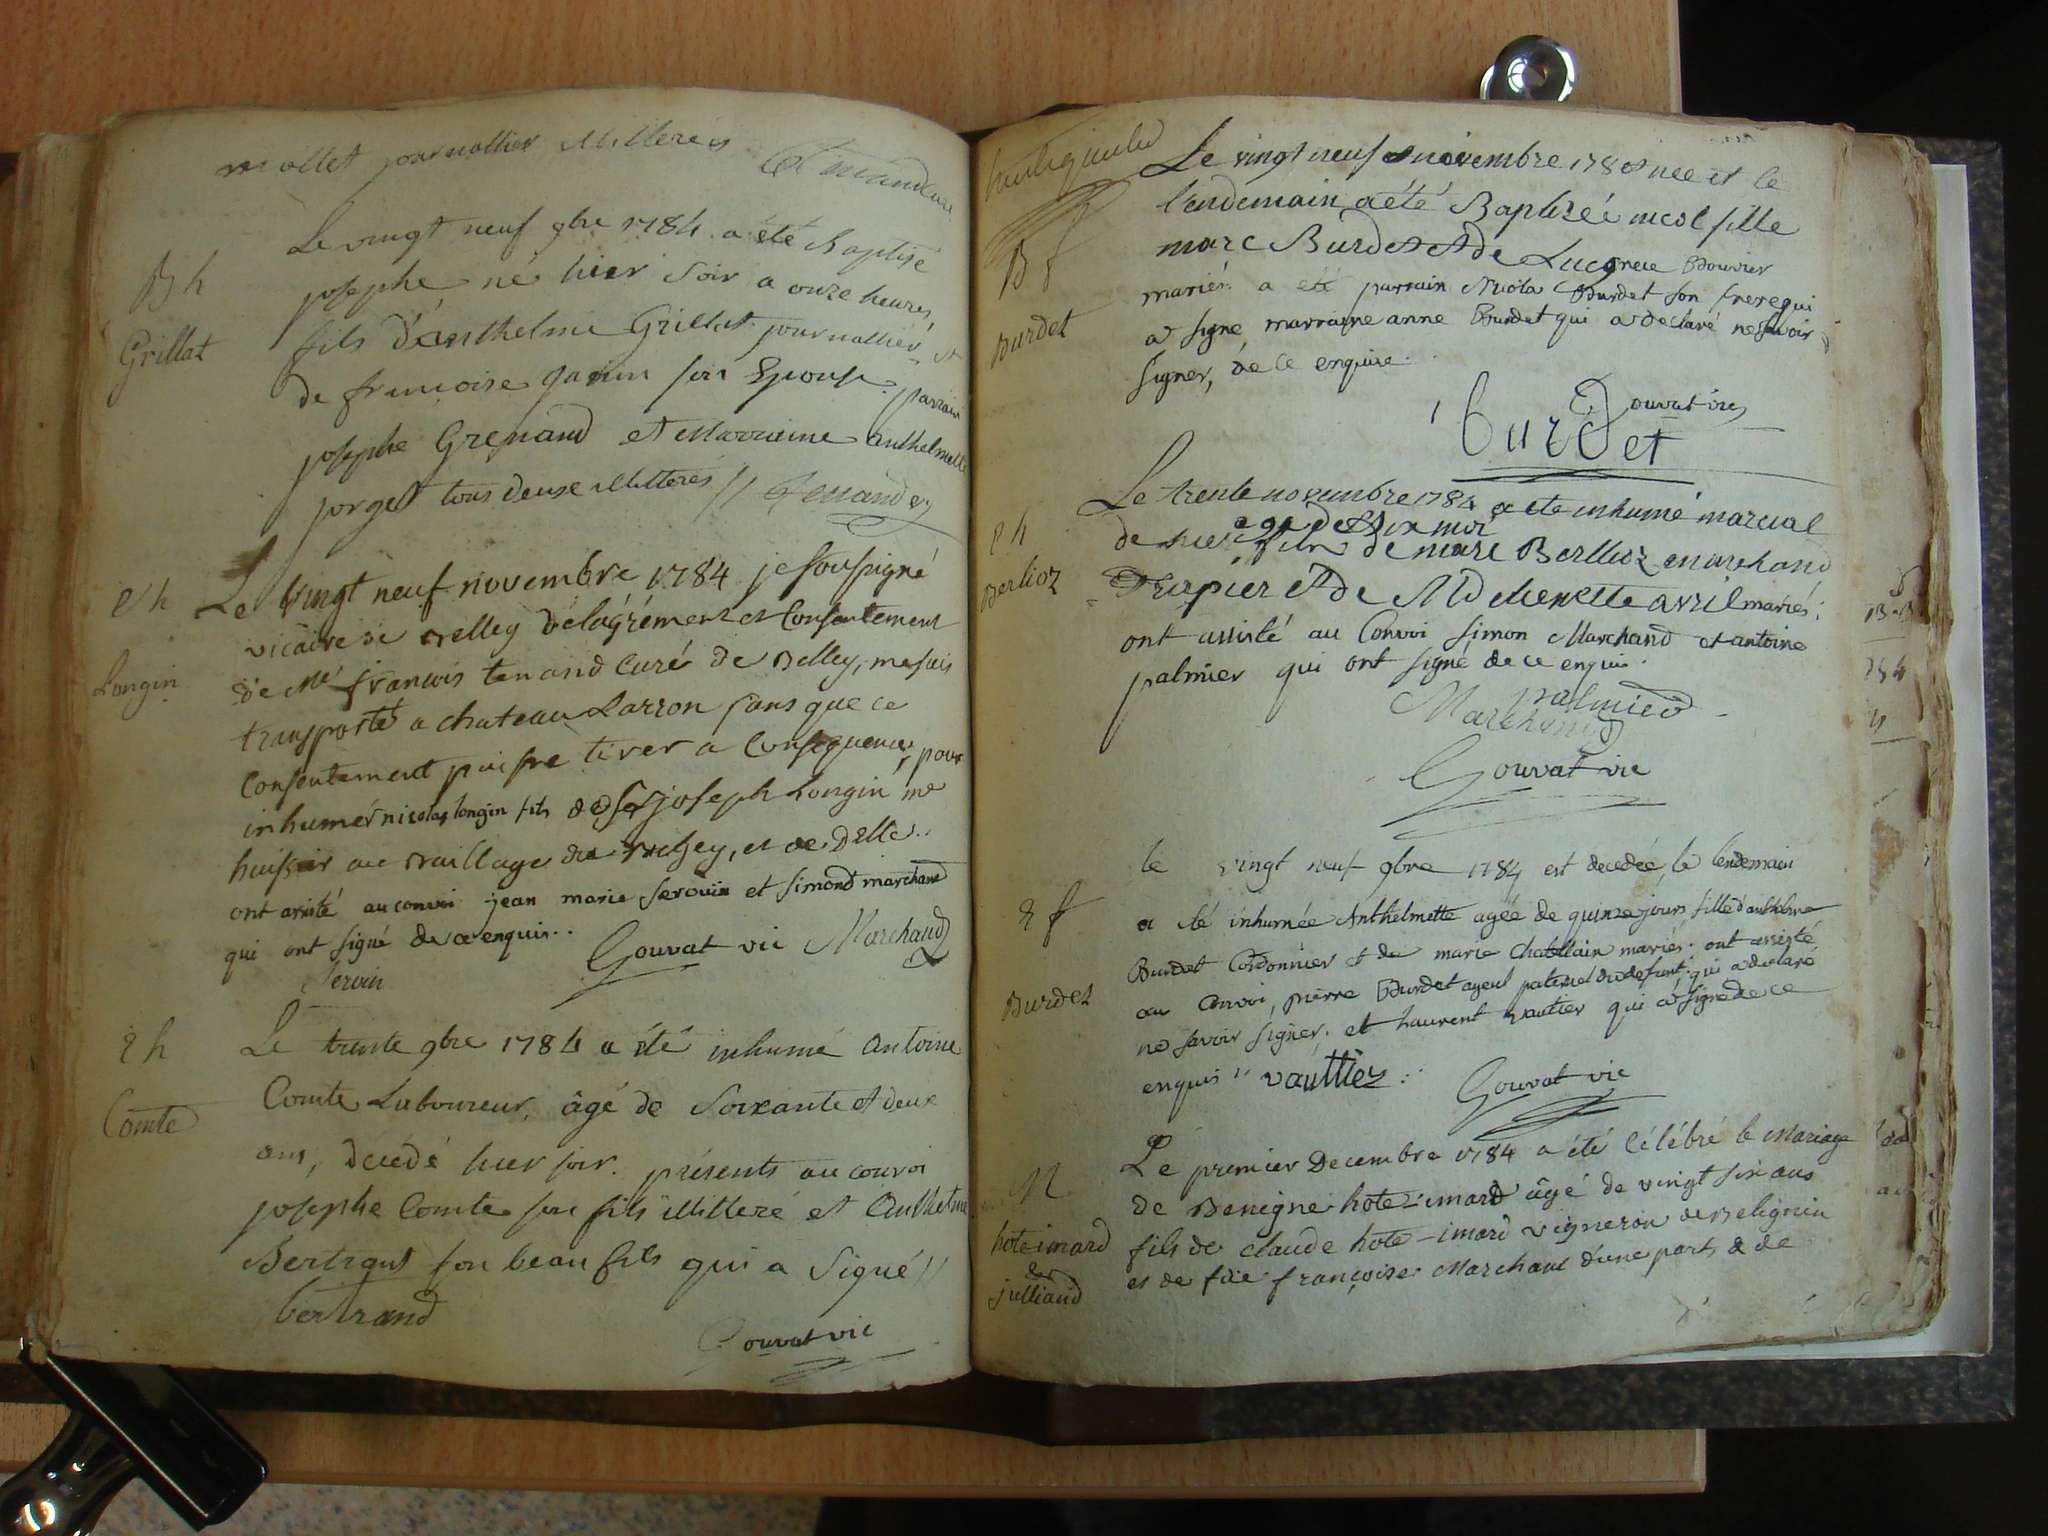 mollet journallier illitterés Tenand curé
Le vingt neuf 9bre 1784 a été Baptisé
B h
josephe né hier soir a onze heures,
fils d'anthelme Grillat journallier et
Grillat
de françoise son Epouse. parrain
josephe Grenand et Marraine anthelmette
jorget tous deux illitterés // Tenand
E h
Le vingt neuf novembre 1784 je soussigné
vicaire de Belley de lagrément et Consentement
Longin
de Mre françois tenand Curé de Belley, me suis
transporté a chateau Larron sans que ce
Consentement puisse tirer a Consequence, pour
inhumér nicolas longin fils de Sr joseph Longin me
huissier au Baillage du Bugey, et de Delle..
ont assisté au convoi jean marie Serouin et simond marchand
qui ont signé de ce enquis..
Gouvat vic Marchand
Servin
E h
Le trente 9bre 1784 a été inhumé Antoine
Comte
Comte Laboureur, âgé de Soixante et deux
ans, décédé hier soir. présents au convoi
josephe Comte son fils illitteré et Anthelme
Bertrant son beau fils qui a Signé //
bertrand
Gouvat vic
Le vingt neuf novembre 1784 née et le
lendemain a été Baptisée nicol fille
B f
marc Burdet et de Lucgrece Bouvier
Burdet
mariés. a été parrain Nicola Burdet son frere qui
a signé marraine anne Burdet qui a declaré ne savoir
signer, de ce enquise.
Gouvat vic
burdet
Le trente novembre 1784 a ete inhumé marcial
E h
agé de six moi
de hier fils de marc Berllioz marchand
Berlioz
Drapier et de Md chenette avril mariés:
ont assisté au Convoi simon Marchand et antoine
palmier qui ont signé de ce enquis.
palmier
Marchand
Gouvat vic
le vingt neuf 9bre 1784 est decedée, le lendemain
E f
a été inhumée Anthelmette agée de quinze jours, fille d'anthelme
Burdet
Burdet Cordonnier et de marie Chatelain mariés. ont assisté
au Convoi, pierre Burdet ayeul paternel du defunt qui a declaré
ne savoir signer, et haurent vautier qui a signé de ce
enquis // vaulties
Gouvat vic
Le premier Decembre 1784 a été Célébré le Mariage
M
de Benigne hote-imard âgé de vingt six ans
hoteimard
fils de claude hote-imard vigneron de Belignin
et
julliand
et de fde françoise Marchant d'une part, & de